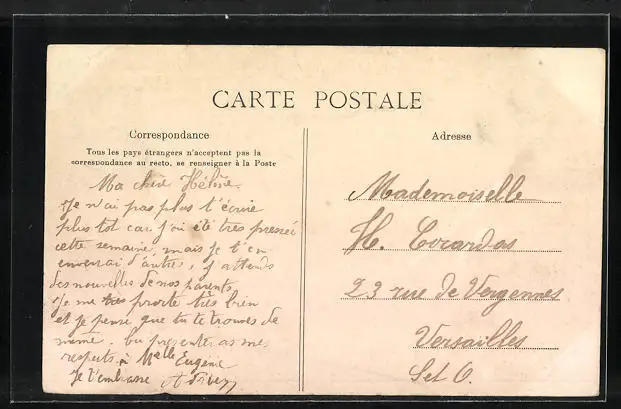 CARTE POSTALE
Correspondance
Tous les pays étrangers n'acceptent pas la
correspondance au recto, se renseigner à la Poste
Ma chère Hélène
Je n'ai pas plus t'écrire
plus tot car j'ai été très pressée
cette semaine, mais je t'en
enverrai d'autres, j'attends
des nouvelles de nos parents
Je me très porte très bien
et je pense que tu te trouves de
même. tu présenteras mes
respects à Melle Eugénie
Je t'embrasse
Adresse
Mademoiselle
H.
23 rue de Vergennes
Versailles
Set O.